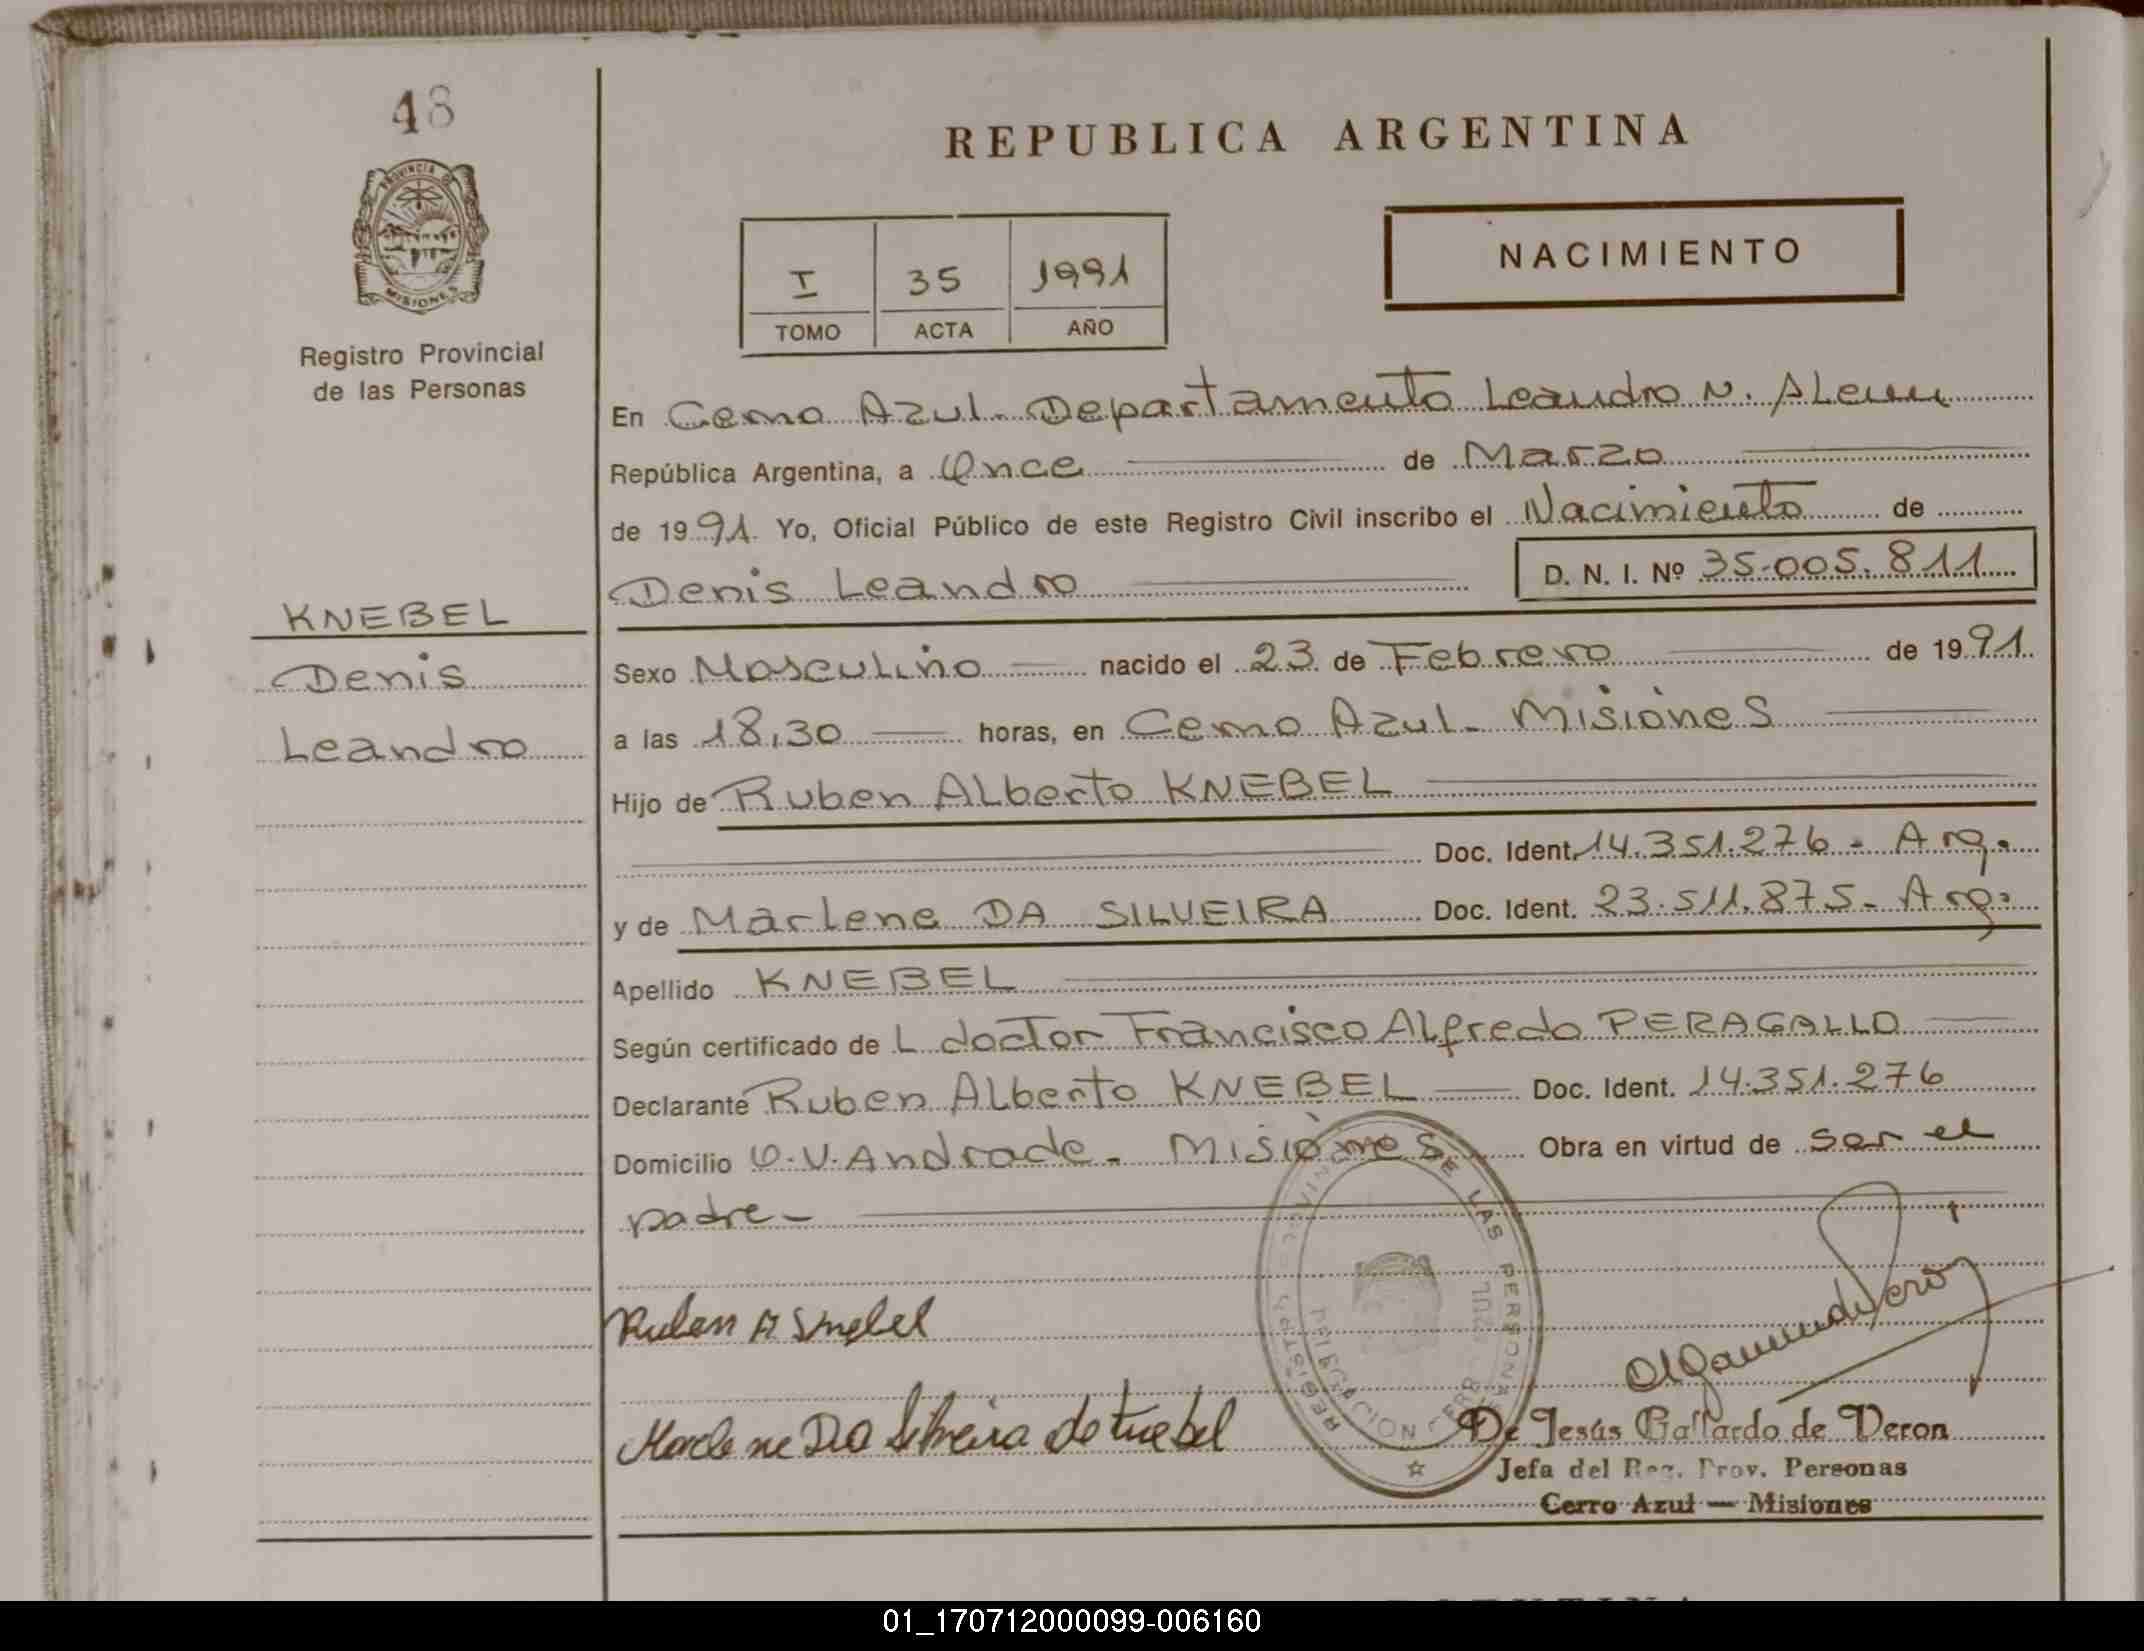 48
PROVINCIA DE
MISIONES
Registro Provincial
de las Personas
KNEBEL
Denis
Leandro
REPUBLICA ARGENTINA
NACIMIENTO
I 35 1991
TOMO ACTA AÑO
En Cerro Azul - Departamento Leandro N. ALem
República Argentina, a Once de Marzo
de 1991. Yo, Oficial Público de este Registro Civil inscribo el Nacimiento de
Denis Leandro D. N. I. Nº 35.005.811
Sexo Masculino nacido el 23 de Febrero de 1991.
a las 18,30 horas, en Cerro Azul - Misiones
Hijo de Ruben ALberto KNEBEL
Doc. Ident. 14.351.276 - Arg.
y de Marlene DA SILVEIRA Doc. Ident. 23.511.875 - Arg.
Apellido KNEBEL
Según certificado de L doctor Francisco ALfredo PERAGALLO
Declarante Ruben ALberto KNEBEL Doc. Ident. 14.351.276
Domicilio O.V. Andrade - Misiones Obra en virtud de ser el
padre -
Ruben A Knebel
Marlene Da Silveira de Knebel
DE LAS PERSONAS
De Jesús Gallardo de Veron
Jefa del Reg. Prov. Personas
Cerro Azul — Misiones
01_170712000099-006160